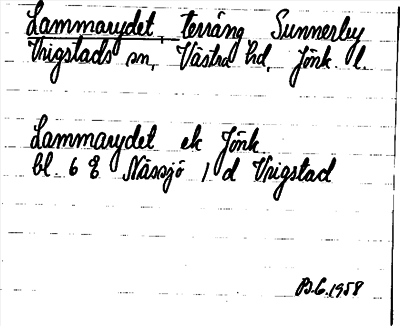 Lammarydet, terräng Sunnerby
Vrigstads sn, Västra hd, Jönk. l.
Lammarydet ek Jönk
bl. 6 8 Nässjö 1 d Vrigstad
B.G. 1958